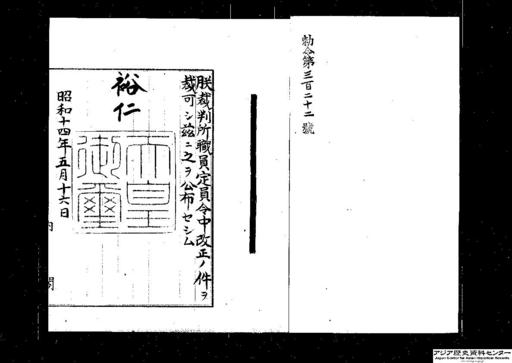 勅令第三百二十二號
朕裁判所職員定員令中改正ノ件ヲ
裁可シ茲ニ之ヲ公布セシム
裕仁
天皇御璽
昭和十四年五月十六日
内閣
アジア歴史資料センター
Japan Center for Asian Historical Records